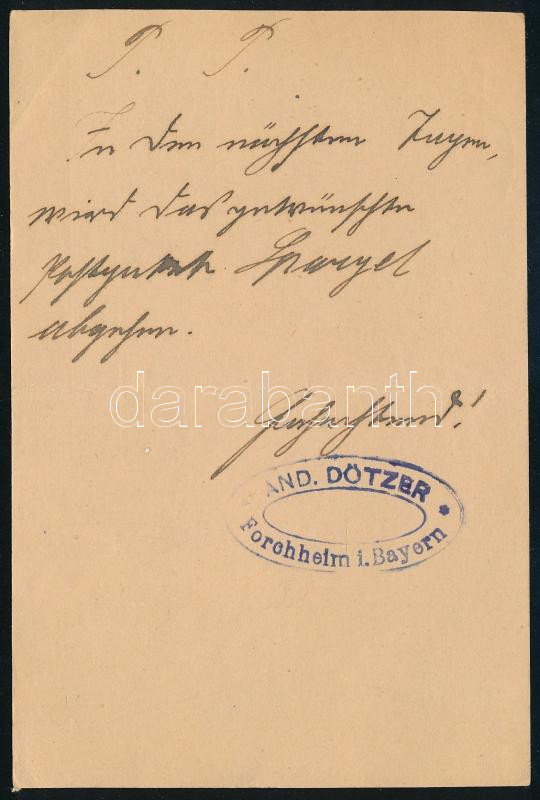 P. P.
In den nächsten Tagen,
wird das gewünschte
Postpaket Spargel
abgehen.
darabanth
Hochachtend!
AND. DÖTZER *
Forchheim i. Bayern